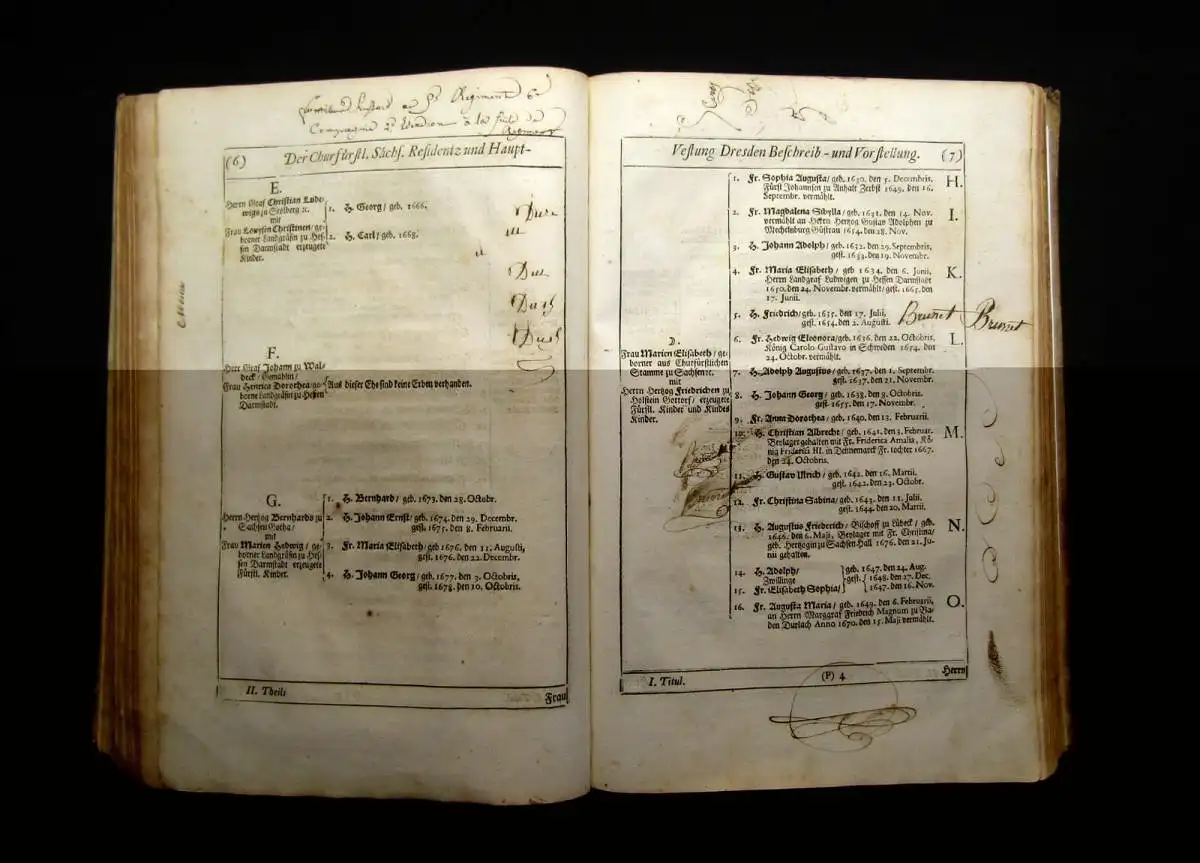 (6) Der Churfürstl. Sächs. Residentz und Haupt-
E.
Herrn Graf Christian Lude-
wigs zu Stolberg ꝛc.
mit
Frau Lowysen Christinen/ ge-
borner Landgräfin zu Hes-
sen Darmstadt erzeugete
Kinder.
1. H. Georg/ geb. 1666.
2. H. Carl/ geb. 1668.
F.
Herr Graf Johann zu Wal-
deck/ Gemahlin/
Frau Henrica Dorothea/ ge-
borne Landgräfin zu Hessen
Darmstadt.
Aus dieser Ehe sind keine Erben verhanden.
G.
Herrn Hertzog Bernhards zu
Sachsen Gotha/
mit
Frau Marien Hedwig/ ge-
borner Landgräfin zu Hes-
sen Darmstadt erzeugete
Fürstl. Kinder.
1. H. Bernhard/ geb. 1673. den 28. Octobr.
2. H. Johann Ernst/ geb. 1674. den 29. Decembr.
gest. 1675. den 8. Februarii.
3. Fr. Maria Elisabeth/ geb. 1676. den 11. Augusti,
gest. 1676. den 22. Decembr.
4. H. Johann Georg/ geb. 1677. den 3. Octobris,
gest. 1678. den 10. Octobris.
II. Theils
Frau
Vestung Dresden Beschreib- und Vorstellung. (7)
D.
Frau Marien Elisabeth/ ge-
borner aus Churfürstlichen
Stamme zu Sachsen ꝛc.
mit
Herrn Hertzog Friedrichen zu
Holstein Gottorf/ erzeugete
Fürstl. Kinder und Kindes
Kinder.
1. Fr. Sophia Augusta/ geb. 1630. den 5. Decembris, H.
Fürst Johannsen zu Anhalt Zerbst 1649. den 16.
Septembr. vermählt.
2. Fr. Magdalena Sibylla/ geb. 1631. den 14. Nov. I.
vermählt an Herrn Hertzog Gustav Adolphen zu
Mechelnburg Güstrau 1654. den 28. Nov.
3. H. Johann Adolph/ geb. 1632. den 29. Septembris,
gest. 1633. den 19. Novembr.
4. Fr. Maria Elisabeth/ geb 1634. den 6. Junii, K.
Herrn Landgraf Ludwigen zu Hessen Darmstadt
1650. den 24. Novembr. vermählt/ gest. 1665. den
17. Junii.
5. H. Friedrich/ geb. 1635. den 17. Julii,
gest. 1654. den 2. Augusti.
Brunet Brunet
6. Fr. Hedwig Eleonora/ geb. 1636. den 22. Octobris, L.
König Carolo Gustavo in Schweden 1654. den
24. Octobr. vermählt.
7. H. Adolph Augustus/ geb. 1637. den 1. Septembr.
gest. 1637. den 21. Novembr.
8. H. Johann Georg/ geb. 1638. den 8. Octobris.
gest. 1655. den 17. Novembr.
9. Fr. Anna Dorothea/ geb. 1640. den 13. Februarii.
10. H. Christian Albrecht/ geb. 1641. den 3. Februar. M.
Beylager gehalten mit Fr. Friderica Amalia, Kö-
nig Friderici III. in Dennemarck Fr. tochter 1667.
den 24. Octobris.
11. H. Gustav Ulrich/ geb. 1642. den 16. Martii.
gest. 1642. den 23. Octobr.
12. Fr. Christina Sabina/ geb. 1643. den 11. Julii.
gest. 1644. den 20. Martii.
13. H. Augustus Friederich/ Bischoff zu Lübeck/ geb. N.
1646. den 6. Maji, Beylager mit Fr. Christina/
geb. Hertzogin zu Sachsen Hall 1676. den 21. Ju-
nii gehalten.
14. H. Adolph/ geb. 1647. den 24. Aug.
Zwillinge gest. 1648. den 27. Dec.
15. Fr. Elisabeth Sophia/ 1647. den 16. Nov.
16. Fr. Augusta Maria/ geb. 1649. den 6. Februarii, O.
an Herrn Marggraf Friedrich Magnum zu Ba-
den Durlach Anno 1670. den 15. Maji vermählt.
I. Titul.
(P) 4
Herrn